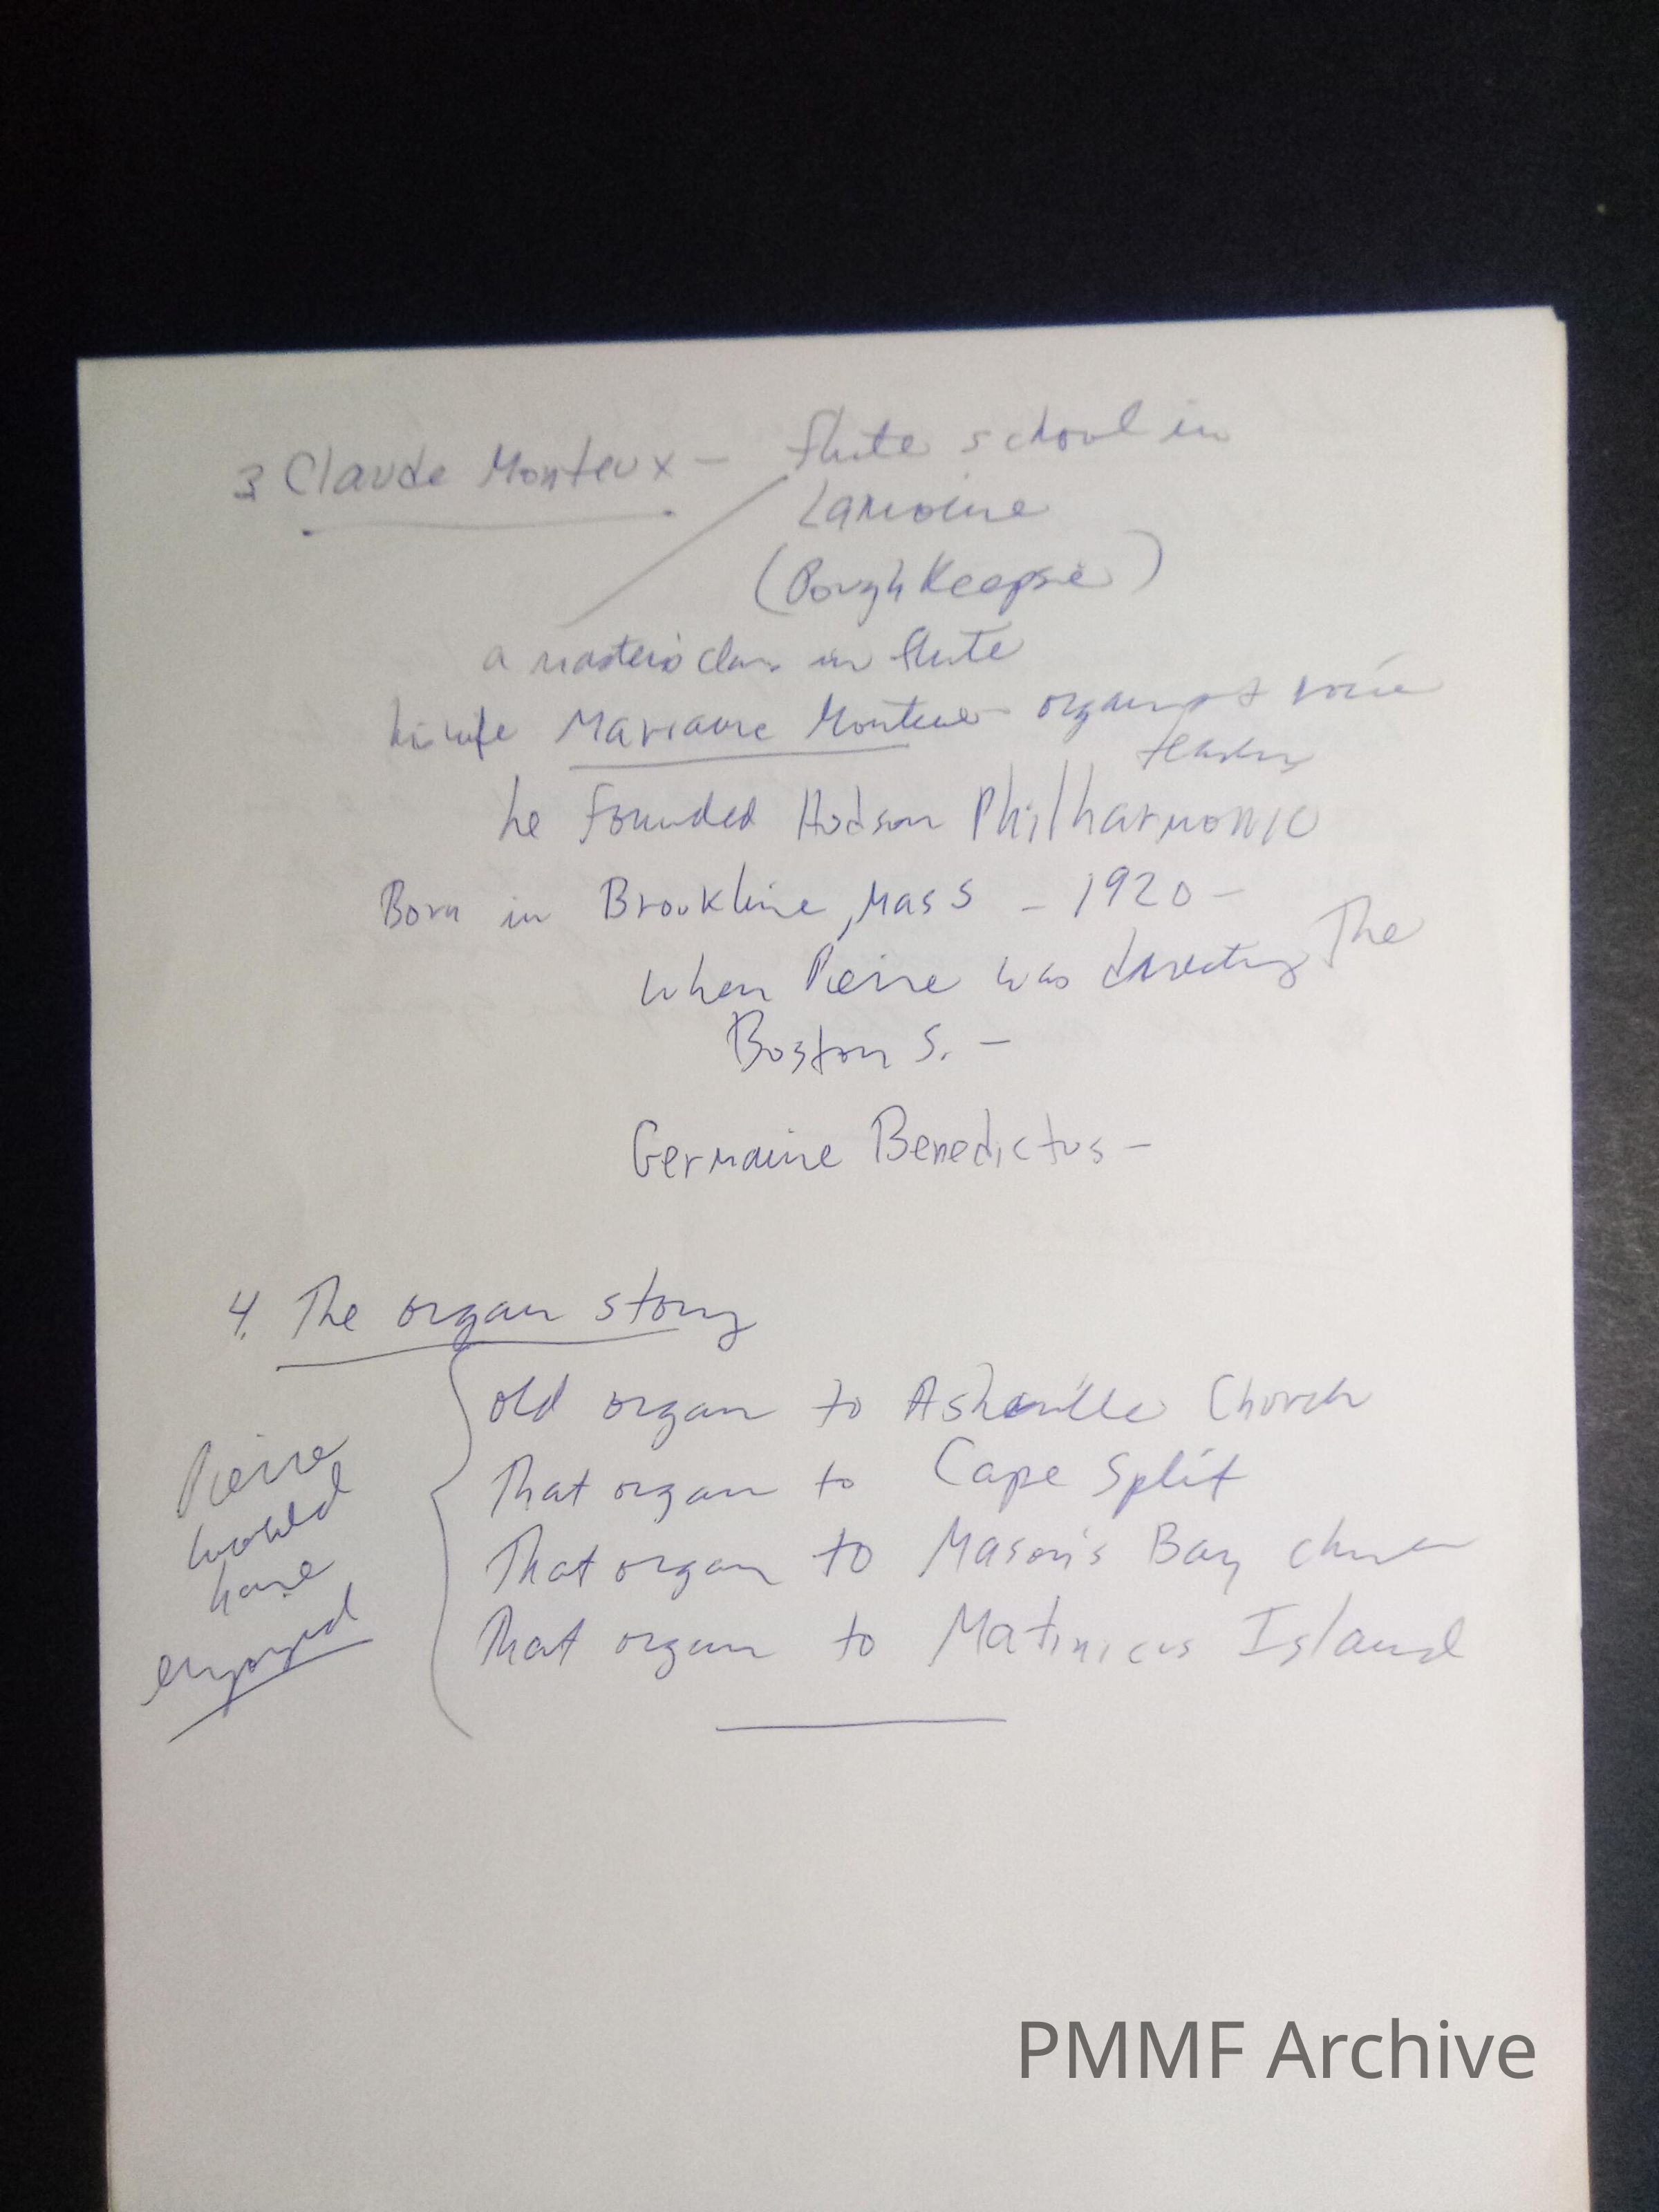 3 Claude Monteux - flute school in
Lamoine
(Poughkeepsie)
a masters class in flute
his wife Marianne Monteux organist voice
teacher
he founded Hudson Philharmonic
Born in Brookline, Mass - 1920 -
when Pierre was directing The
Boston S. -
Germaine Benedictus -
4. The organ story
old organ to Ashville Church
That organ to Cape Split
That organ to Mason's Bay church
That organ to Matinicus Island
Pierre
would
have
enjoyed
PMMF Archive